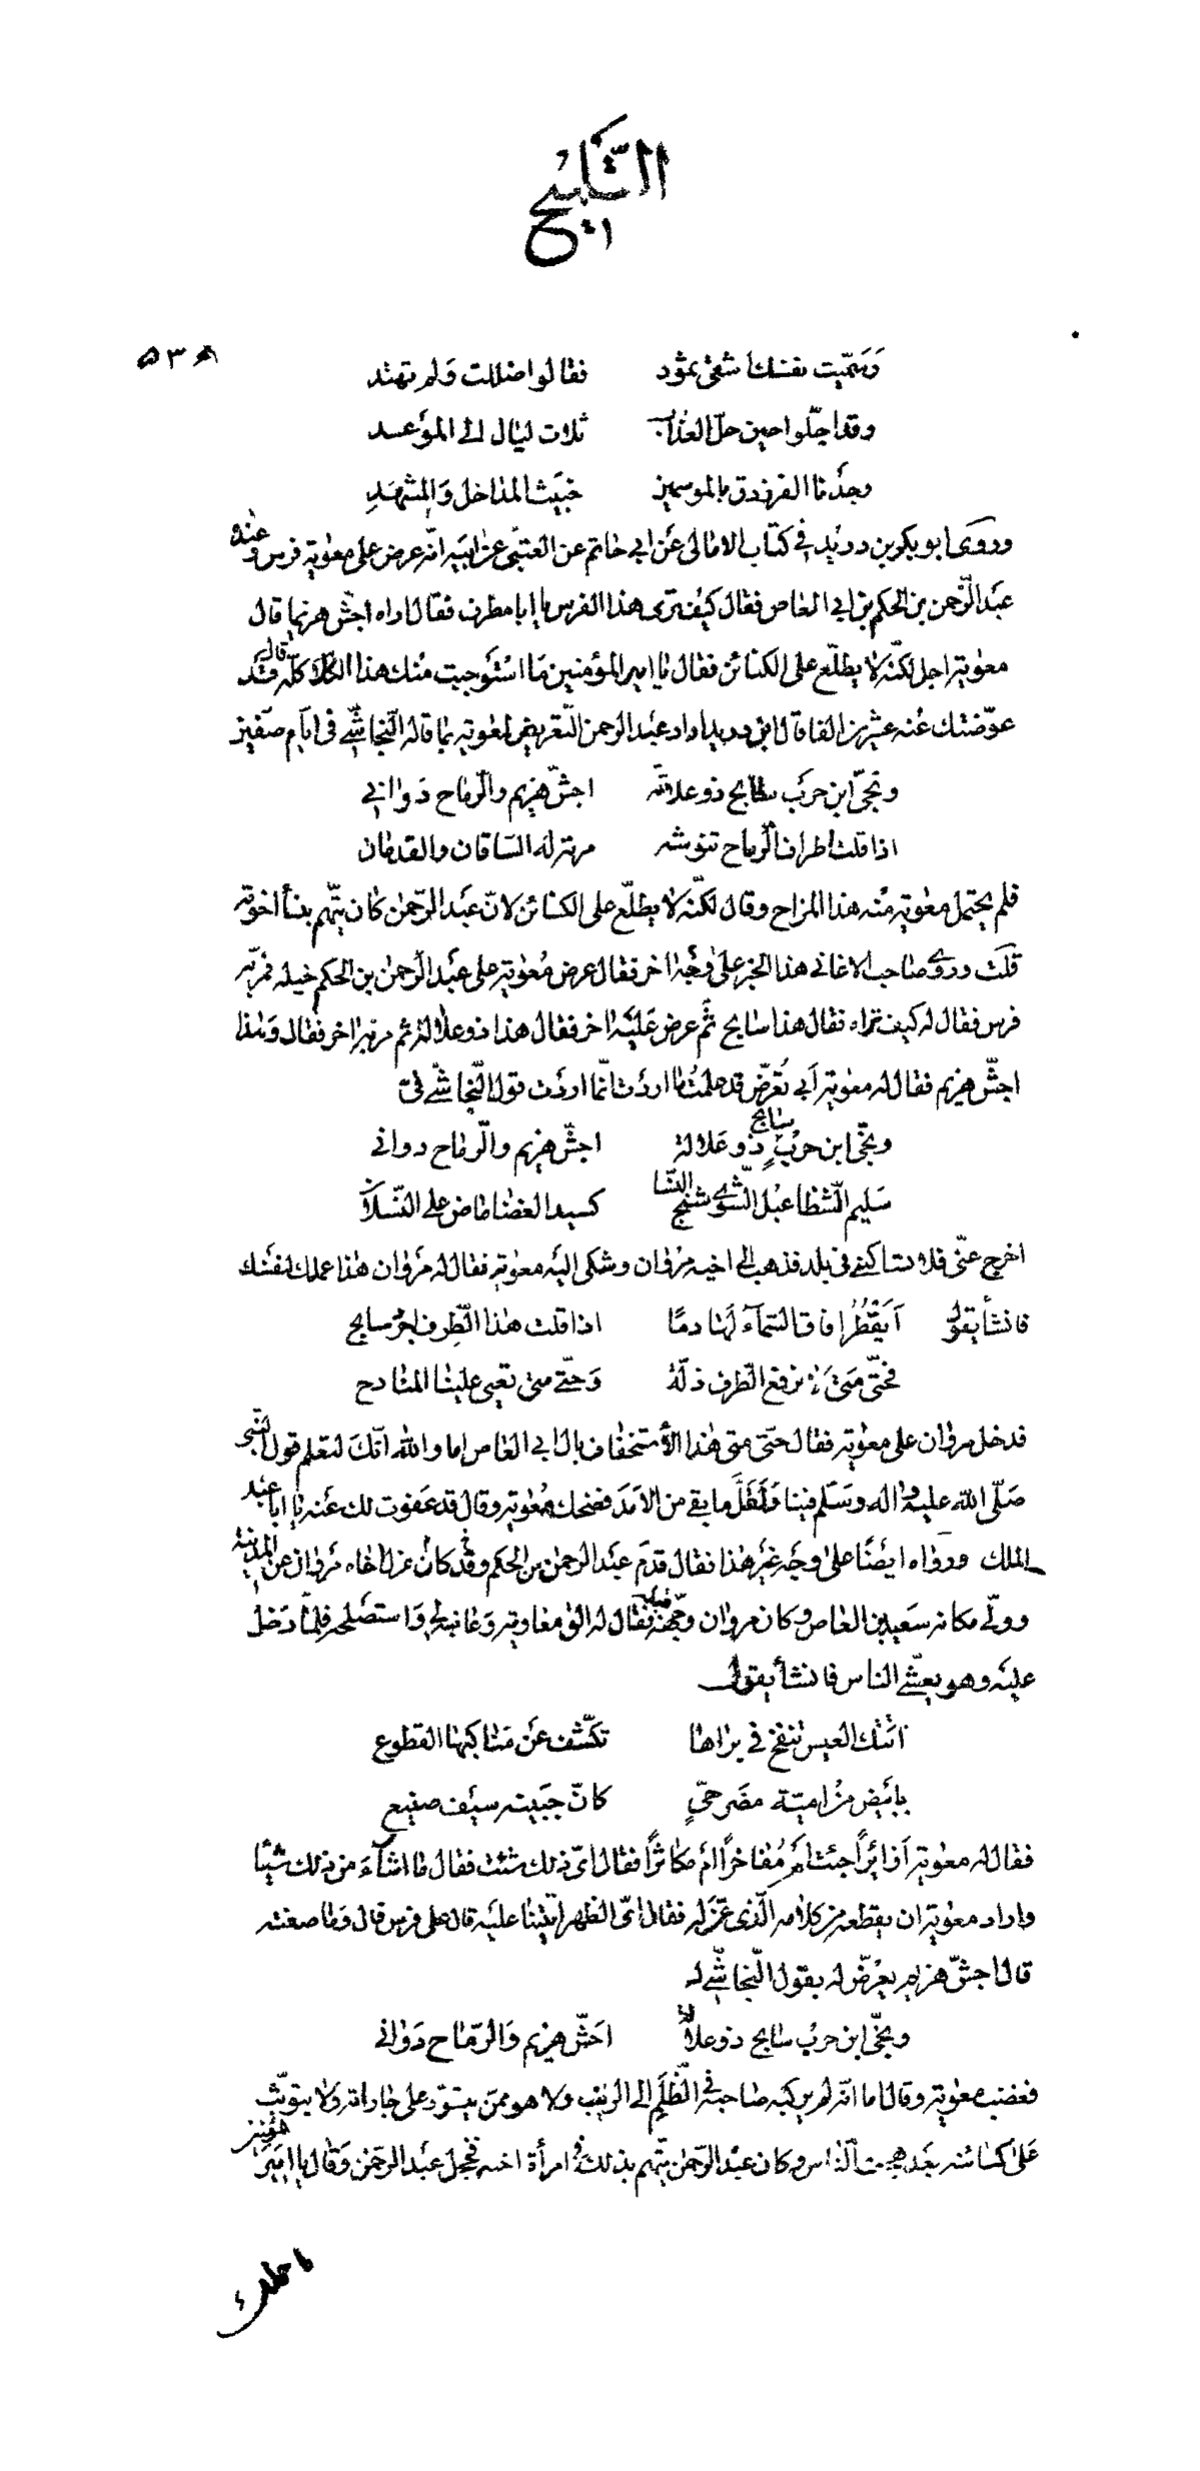 التلميح
٥٣٨
وسميت نفسك اشقى ثمود فقالوا ضللت ولم تهتد
وقد اجلوا حين حل العذاب ثلاث ليال الى الموعد
وجدنا الفرزدق بالموسمين خبيث المداخل والمشهد
وروى ابو بكر بن دريد في كتاب الامالى عن ابي حاتم عن العتبى عن ابيه انه عرض على معوية فرس وعنده
عبد الرحمن بن الحكم بن ابي العاص فقال كيف ترى هذا الفرس يا ابا مطرف فقال اراه اجش هزيما قال
معوية اجل لكنه لا يطلع على الكنائن فقال يا امير المؤمنين ما استوجبت منك هذا الكلام كله قال قد
عوضتك عنه عشرين الفا قال ابن دريد اراد عبد الرحمن التعريض لمعوية بما قاله النجاشي في ايام صفين
ونجى ابن حرب سابح ذو علالة اجش هزيم والرماح دواني
اذا قلت اطراف الرماح تنوشه مرته له الساقان والقدمان
فلم يحتمل معوية منه هذا المزاح وقال لكنه لا يطلع على الكنائن لان عبد الرحمن كان يتهم بنسأ اخوته
قلت وروى صاحب الاغاني هذا الخبر على وجه اخر فقال عرض معوية على عبد الرحمن بن الحكم خيله فمر به
فرس فقال له كيف تراه فقال هذا سابح ثم عرض عليه اخر فقال هذا ذو علالة ثم مر به اخر فقال وهذا
اجش هزيم فقال له معوية أبي تعرض قد علمت ما اردت انما اردت قول النجاشي في
ونجى ابن حرب سابح ذو علالة اجش هزيم والرماح دواني
سليم الشظا عبل الشوى شنج النسا كسيد الغضا ماض على النسلان
اخرج عني فلا تساكني في بلد فذهب الى اخيه مروان وشكى اليه معوية فقال له مروان هذا عملك لنفسك
فانشأ يقول أيقطر افاق السماء لها دما اذا قلت هذا الطرف اجرد سابح
فحتى متى لا نرفع الطرف ذلة وحتى متى تعيى علينا المنادح
فدخل مروان على معوية فقال حتى متى هذا الأستخفاف بال ابي العاص اما والله انك لتعلم قول النبي
صلى الله عليه واله وسلم فينا ولقل ما بقي من الامد فضحك معوية وقال قد عفوت لك عنه يا ابا عبد
الملك ورواه ايضا على وجه غير هذا فقال قدم عبد الرحمن بن الحكم وقد كان عزل اخاه مروان عن المدينة
وولى مكانه سعيد بن العاص وكان مروان وجهه فقال له الق معاوية وعاتبه لي واستصلحه فلما دخل
عليه وهو يعشي الناس فانشأ يقول
اتتك العيس تنفخ في براها تكشف عن مناكبها القطوع
بابيض من امية مضرحي كان جبينه سيف صنيع
فقال له معوية أزائرا جئت أم مفاخرا أم مكاثرا فقال اي ذلك شئت فقال ما اشاء من ذلك شيئا
واراد معوية ان يقطعه من كلامه الذي عن له فقال اي الظهر اتيتنا عليه قال على فرس قال وما صفته
قال اجش هزيم يعرض له بقول النجاشي له
ونجى ابن حرب سابح ذو علالة اجش هزيم والرماح دواني
فغضب معوية وقال اما انه لم يركبه صاحبه في الظلم الى الريب ولا هو ممن يتسور على جاراته ولا يتوثب
على كنائنه بعد هجعت الناس وكان عبد الرحمن يتهم بذلك في امرأة اخيه فخجل عبد الرحمن وقال يا امير المؤمنين
ما حملك